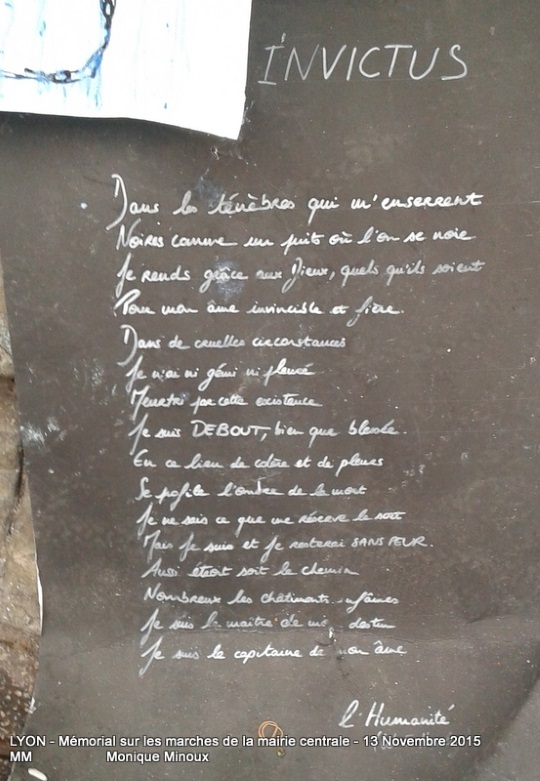 INVICTUS
Dans les ténèbres qui m'enserrent
Noires comme un puits où l'on se noie
Je rends grâce aux Dieux, quels qu'ils soient
Pour mon âme invincible et fière.
Dans de cruelles circonstances
Je n'ai ni gémi ni pleuré
Meurtri par cette existence
Je suis DEBOUT, bien que blessé.
En ce lieu de colère et de pleurs
Se profile l'ombre de la mort
Je ne sais ce que me réserve le sort
Mais je suis et je resterai SANS PEUR.
Aussi étroit soit le chemin
Nombreux les châtiments infâmes
Je suis le maître de mon destin
Je suis le capitaine de mon âme
l'Humanité
LYON - Mémorial sur les marches de la mairie centrale - 13 Novembre 2015
MM Monique Minoux